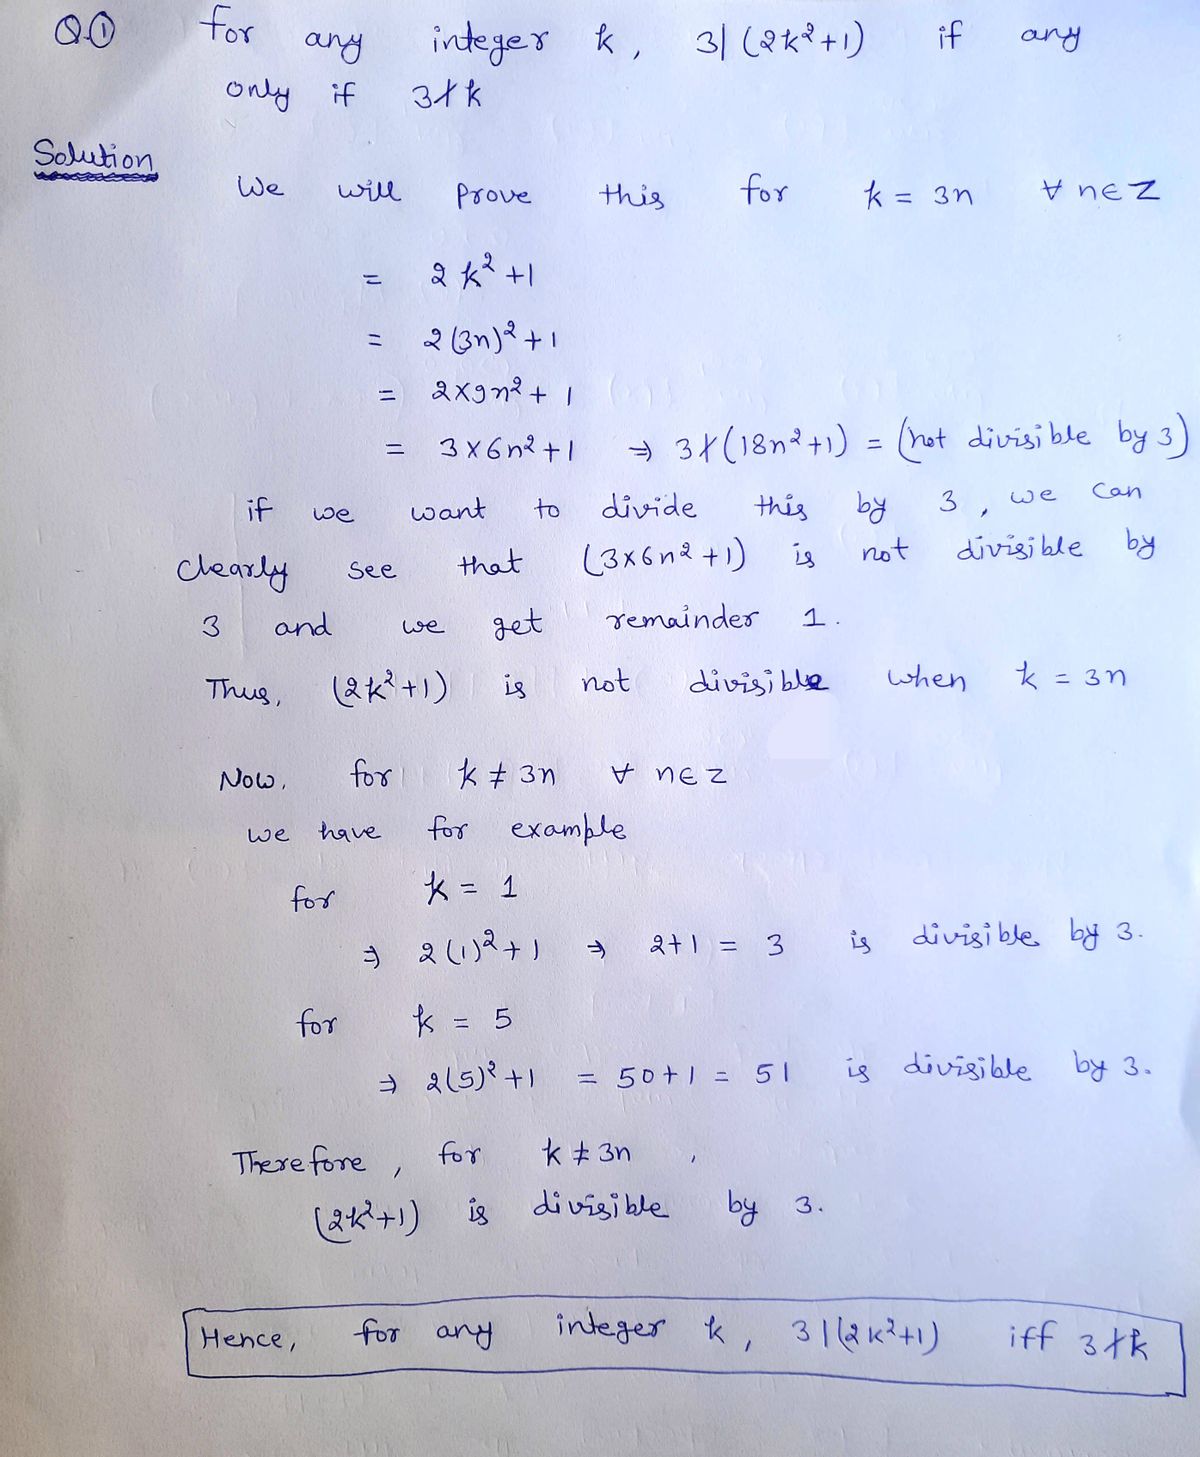 Q.①   for any integer k, 3|(2k²+1) if any
only if 3∤k
Solution
We will prove this for k = 3n ∀ n∈Z
= 2k²+1
= 2(3n)²+1
= 2×9n²+1
= 3×6n²+1 ⇒ 3∤(18n²+1) = (not divisible by 3)
if we want to divide this by 3, we can
clearly see that (3×6n²+1) is not divisible by
3 and we get remainder 1.
Thus, (2k²+1) is not divisible when k = 3n
Now, for k ≠ 3n ∀ n∈Z
we have for example
for k = 1
⇒ 2(1)²+1 ⇒ 2+1 = 3 is divisible by 3.
for k = 5
⇒ 2(5)²+1 = 50+1 = 51 is divisible by 3.
Therefore, for k ≠ 3n,
(2k²+1) is divisible by 3.
Hence, for any integer k, 3|(2k²+1) iff 3∤k